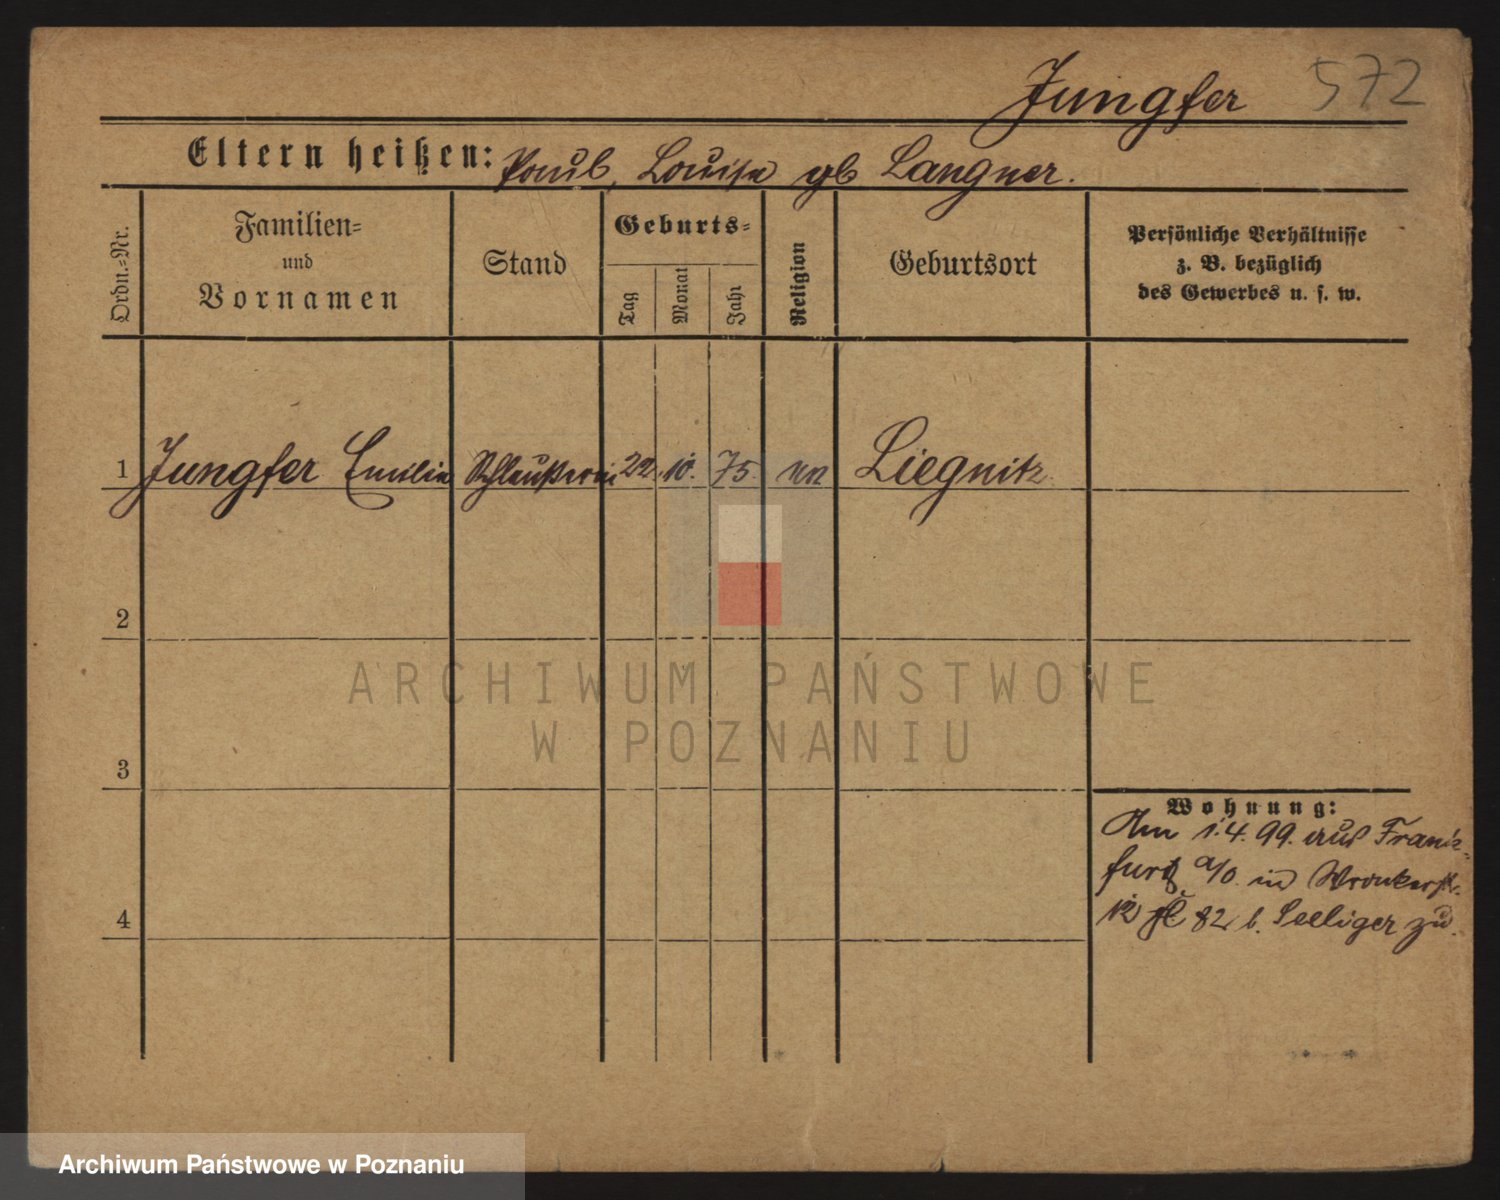 Jungfer 572
Eltern heißen: Paul, Louise gb Langner.
Ordn.-Nr.
Familien-
und
Vornamen
Stand
Geburts-
Tag
Monat
Jahr
Religion
Geburtsort
Persönliche Verhältnisse
z. B. bezüglich
des Gewerbes u. s. w.
1 Jungfer Emilie 22. 10. 75. Liegnitz
2
ARCHIWUM PAŃSTWOWE
W POZNANIU
3
Wohnung:
Am 1.4.99. aus Frank-
furt a/O. in Wronkerstr.
12 82 b. Seeliger zu.
4
Archiwum Państwowe w Poznaniu